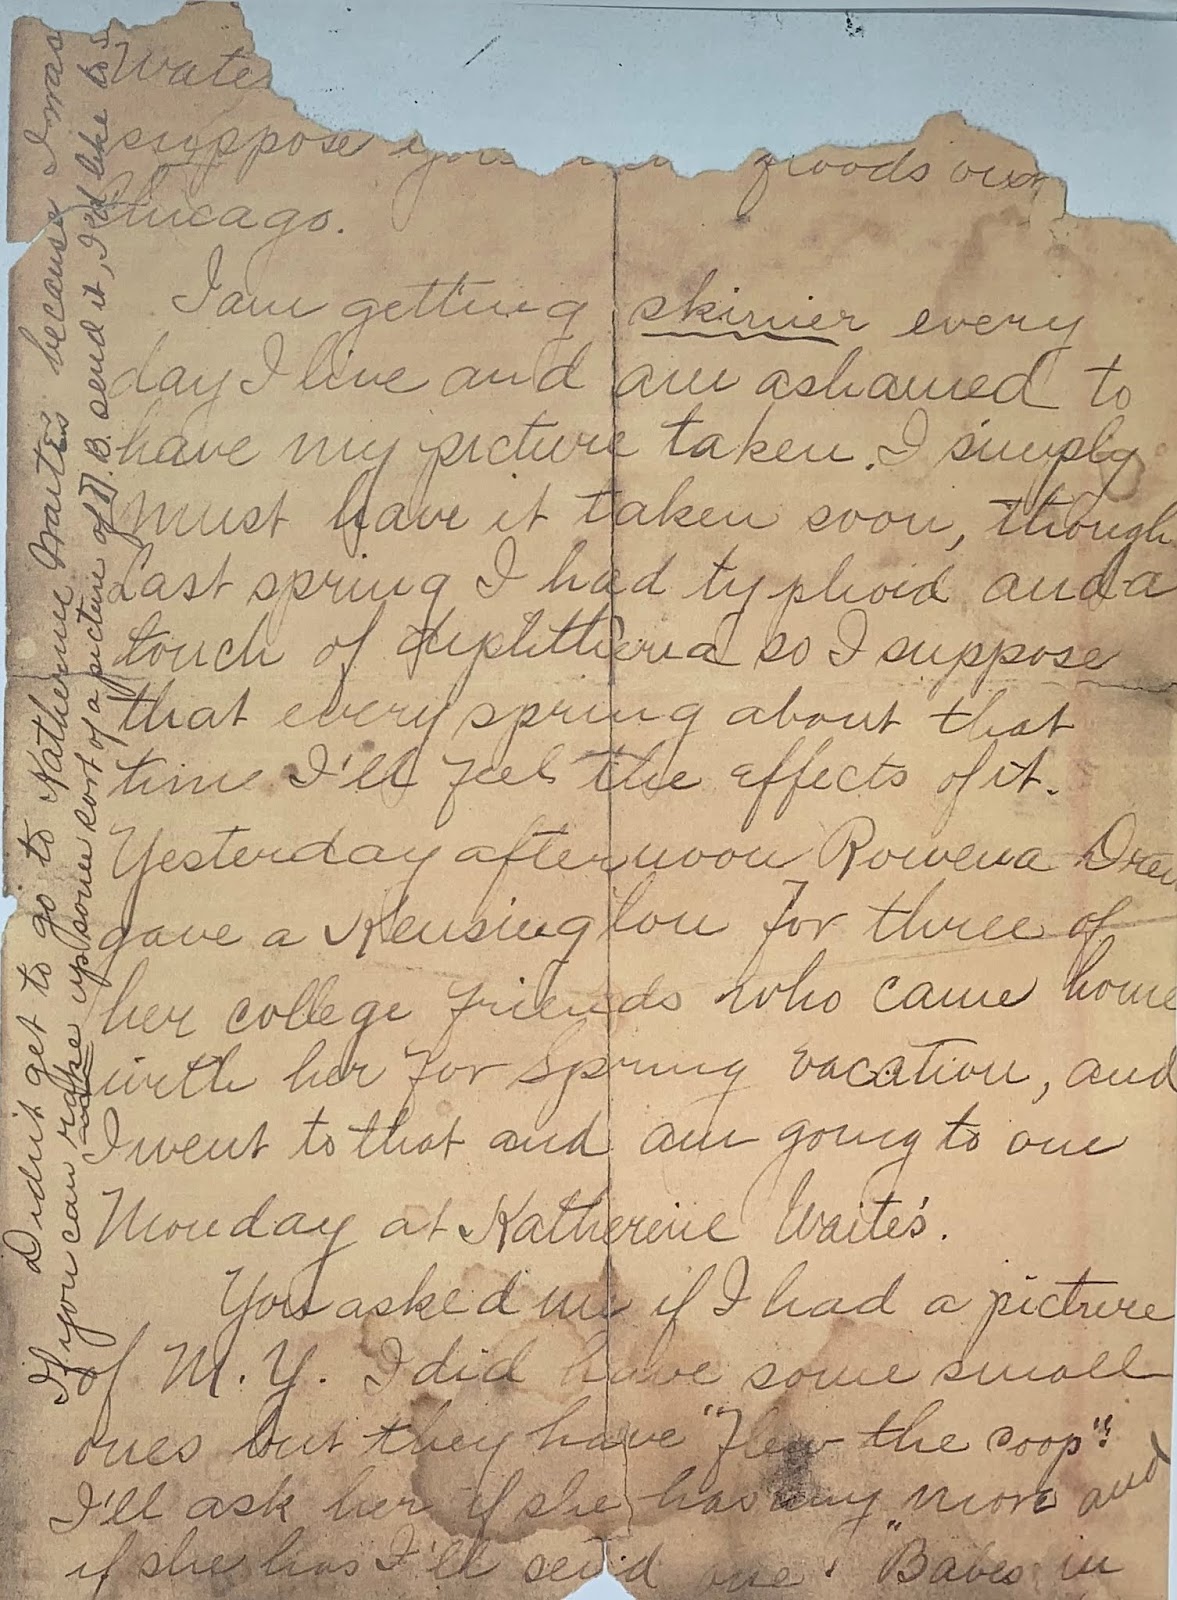 suppose
Chicago.
I am getting skinier every
day I live and am ashamed to
have my picture taken. I simply
must have it taken soon, though
Last spring I had typhoid and a
touch of diphtheria so I suppose
that every spring about that
time I'll feel the effects of it.
Yesterday afternoon Rowena
gave a Kensington for three of
her college friends who came home
with her for spring vacation, and
I went to that and am going to one
Monday at Katherine Waite's.
You asked me if I had a picture
of M. Y. I did have some small
ones but they have "flew the coop"!
I'll ask her if she has any more and
if she has I'll send one. "Babes in
Didn't get to go to Katherine Waite's because I was
If you can rake up some sort of a picture of J. B. send it, I'd like to